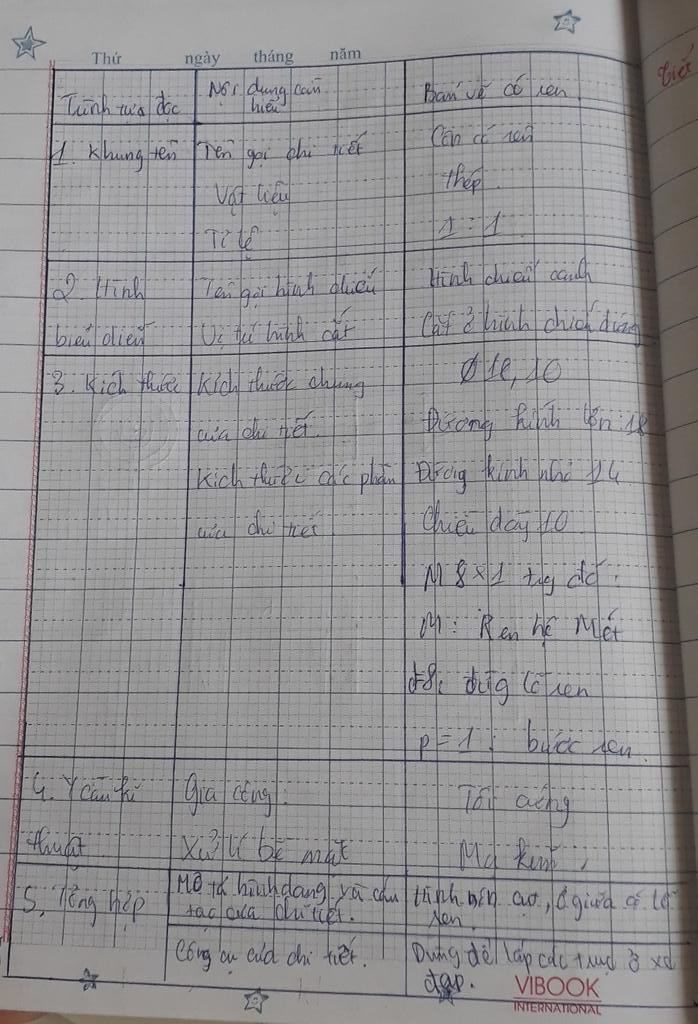 Thứ ngày tháng năm
Tiết
Trình tựa đọc
Nội dung cần
hiểu
Bản vẽ có ren
1. Khung tên
Tên gọi chi tiết
Vật liệu
Tỉ lệ
Côn có ren
thép
1:1
2. Hình
biểu diễn
Tên gọi hình chiếu
Vị trí hình cắt
Hình chiếu cạnh
Cắt ở hình chiếu đứng
3. Kích thước
Kích thước chung
của chi tiết.
Kích thước các phần
của chi tiết
Ø 18, 10
Đường kính lớn 18
Đường kính nhỏ 14
Chiều dày 10
M 8×1 tng đó:
M: Ren hệ Mét
d8: đưg lỗ ren
p=1: bước ren.
4. Y cầu kĩ
thuật
Gia công:
Xử lí bề mặt
Tôi cứng
Mạ kẽm
5. Tổng hợp
Mô tả hình dạng và cấu
tạo của chi tiết.
Công cụ của chi tiết.
trình nón cụt, ở giữa có lỗ
ren.
Dùng để lắp các trục ở xe
đạp.
VIBOOK
INTERNATIONAL